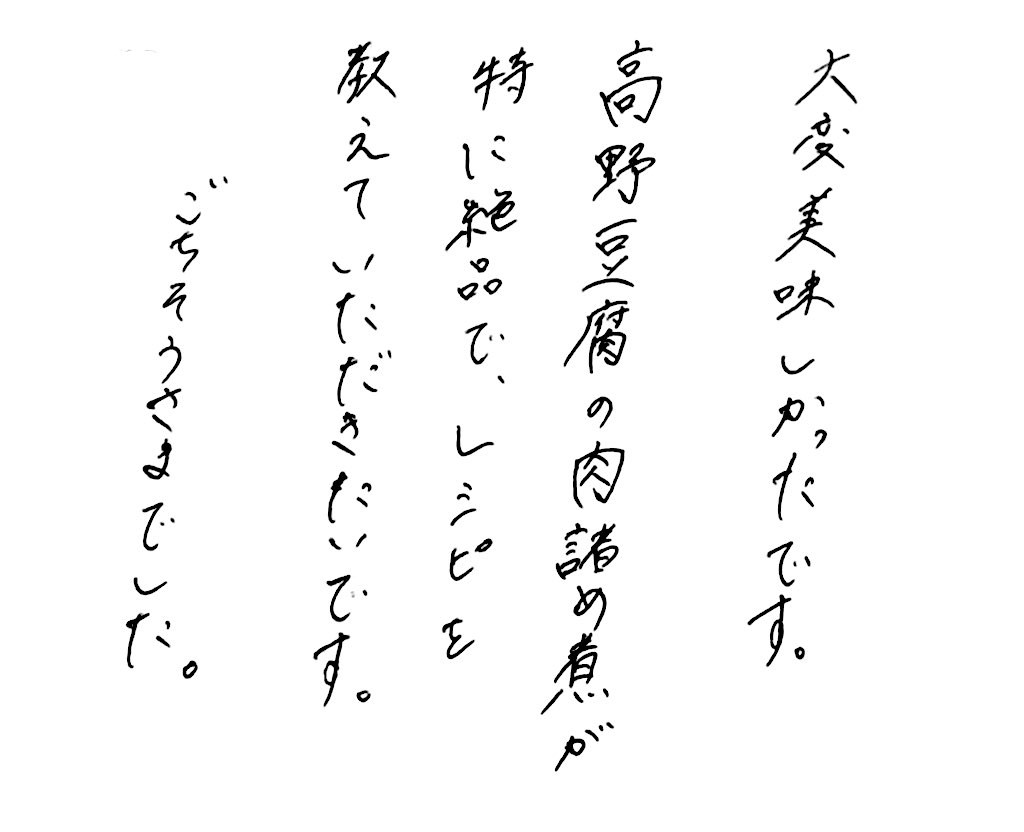 大変美味しかったです。
高野豆腐の肉諸め煮が
特に絶品で、レシピを
教えていただきたいです。
ごちそうさまでした。